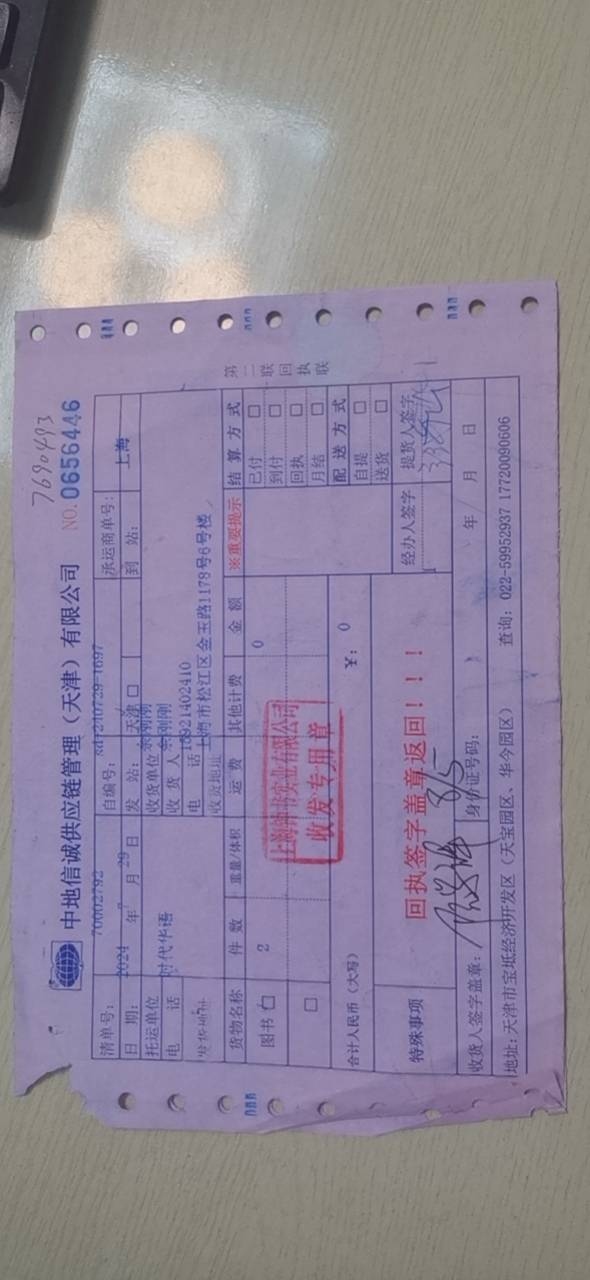 7690493
中地信诚供应链管理（天津）有限公司 NO.0656446
清单号： 70002792 自编号： 承运商单号：
日 期： 2024 年 7 月 29 日 发 站： 天津 □ 到 站： 上海
托运单位 时代华语 收货单位 余刚刚
电 话 收 货 人 余刚刚
电 话 15921402410
收货地址 上海市松江区金玉路1178号6号楼
货物名称 件 数 重量/体积 运 费 其他计费 金 额 ※重要提示 结 算 方 式
图书 □ 2 0 已付 □
到付 □
□ 回执 □
月结 □
合计人民币（大写） ¥: 0 配 送 方 式
自提 □
送货 □
特殊事项 回执签字盖章返回！！！ 经办人签字 提货人签字
收货人签字盖章： 8/5 身份证号码： 年 月 日
地址：天津市宝坻经济开发区（天宝园区、华今园区） 查询：022-59952937 17720090606
第二联回执联
上海钟书实业有限公司
收发专用章